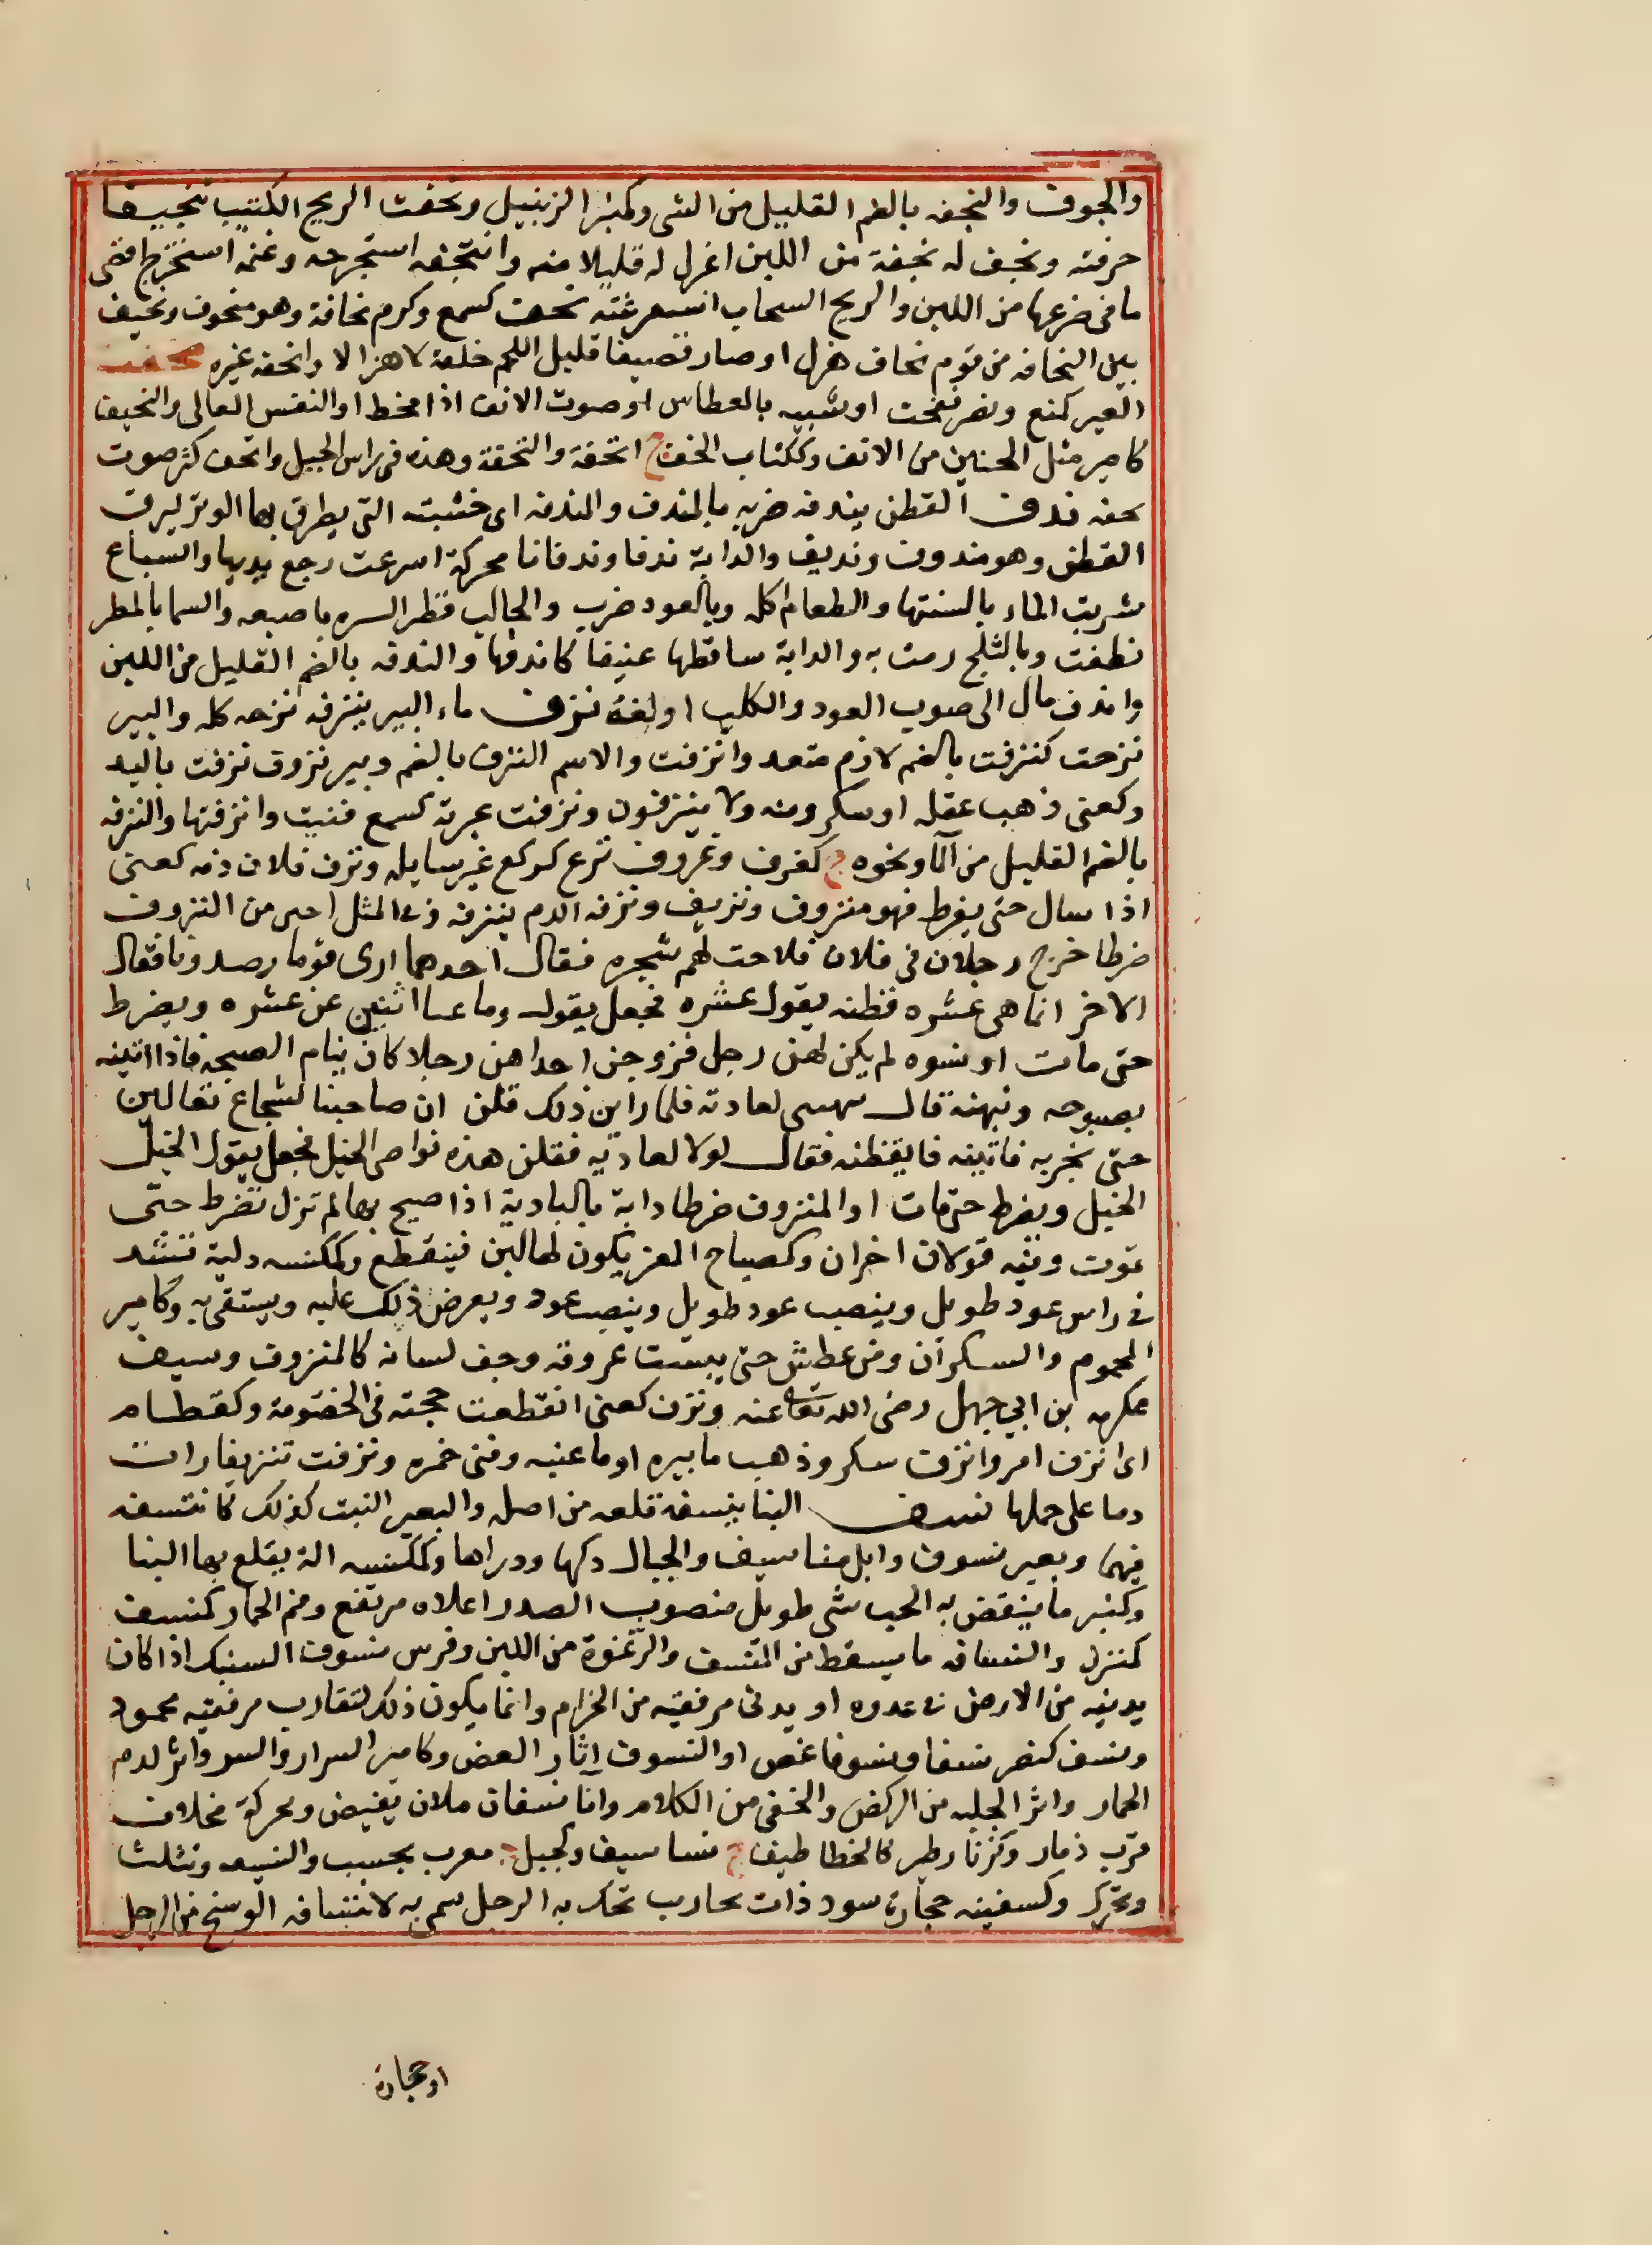 والجوف والنجفه بالضم القليل من الشى وكمنبر الزنبيل ونجفت الريح الكثيب تنجيفا
جرفته ونجف له نجفة من اللبن اعزل له قليلا منه وانتجفه استخرجه وغنمه استخرج اقصى
ما فى ضرعها من اللبن والريح السحاب استفرغته نحف كسمع وكرم نحافة وهو منحوف ونحيف
بين النحافه من قوم نحاف هزل او صار قضيفا قليل اللحم خلقة لا هزالا وانحفه غيره نخفت
العير كمنع ونصر نفخت او شبيه بالعطاس او صوت الانف اذا مخط او النفس العالى والنخيف
كامير مثل الخنين من الانف وككتاب الخف ج انخفة والنخفة وهده فى راس الجبل وانخف كثر صوت
نخفه ندف القطن يندفه ضربه بالمندف والمندفه اى خشبته التى يطرق بها الوتر ليرق
القطن وهو مندوف ونديف والدابة ندفا وندفانا محركة اسرعت رجع يديها والسباع
شربت الماء بالسنتها والطعام اكله وبالعود ضرب والحالب فطر السره باصبعه والسما بالمطر
نطفت وبالثلج رمت به والدابة ساقها عنيفا كاندفها والندفه بالضم القليل من اللبن
واندف مال الى صوب العود والكلب اولغه نزف ماء البير ينزفه نزحه كله والبير
نزحت كنزفت بالضم لازم متعد وانزفت والاسم النزف بالضم وبير نزوف نزفت باليد
وكعنى ذهب عقله او سكر ومنه ولا ينزفون ونزفت عبرته كسمع فنيت وانزفتها والنزفه
بالضم القليل من الما ونحوه ج كغرف وعروف نزع كركع غير سايله ونزف فلان دمه كعنى
اذا سال حتى يفرط فهو منزوف ونزيف ونزفه الدم ينزفه وفى المثل اجبن من المنزوف
ضرطا خرج رجلان فى فلاة فلاحت لهم شجره فقال احدهما ارى قوما رصدونا فقال
الاخر انما هى عشره فظنه يقول عشره فجعل يقول وما غنا اثنين عن عشره ويضرط
حتى مات او نسوه لم يكن لهن رجل فزوجن احداهن رجلا كان ينام الصبحه فاذا اتينه
بصبوحه ونبهنه قال لعادته فلما راين ذلك قلن ان صاحبنا لشجاع تعالين
حتى نجربه فاتينه فايقظنه فقال لولا لعاديه فقلن هذه نواصى الخيل فجعل يقول الخيل
الخيل ويضرط حتى مات او المنزوف ضرطا دابة بالبادية اذا صيح بها لم تزل تضرط حتى
تموت وفيه قولان اخران وكمصباح المعز يكون لها لبن فينقطع وكمكنسه دلية تشد
فى راس عود طويل وينصب عود طويل وينصب عود ويعرض ذلك عليه ويستقى به وكامير
المحموم والسكران ومن عطش حتى يبست عروقه وجف لسانه كالمنزوف وسيف
عكرمه بن ابى جهل رضى الله تعالى عنه ونزف كعنى انقطعت حجته فى الخصومة وكقطام
اى انزف امر وانزف سكر وذهب ما بيره او ما عينه وفنى خمره ونزفت تنزيفا رات
دما على حملها نسف البنا ينسفه قلعه من اصله والبعير النبت كذلك كانتسفه
فيهما وبعير نسوف وابل مناسيف والجبال دكها وذراها وكمكنسه الة يقلع بها البنا
وكمنبر ما ينفض به الحب شى طويل منصوب الصدر اعلاه مرتفع وفم الحمار كمنسف
كمنزل والنسافه ما يسقط من المنسف والرغوة من اللبن وفرس نسوف السنبك اذا كان
يدنيه من الارض فى عدوه او يدنى مرفقيه من الحزام وانما يكون ذلك لتقارب مرفقيه محمود
ونسف كنصر نسفا ونسوفا عض او النسوف اثار العض وكامير السرار والسر واثر لدم
الحمار واثر الجلبه من الركض والخفى من الكلام وانا نسفان ملان يفيض ومحركة مخلاف
قرب ذمار وكزنار طير كالخطاطيف ج نساسيف وكجبل معرب نخشب والنسيفه وتثلث
وتحرك وكسفينه حجارة سود ذات نخارب تحك بها الرجل سمى به لانتسافه الوسخ من الرجل
او حجارة